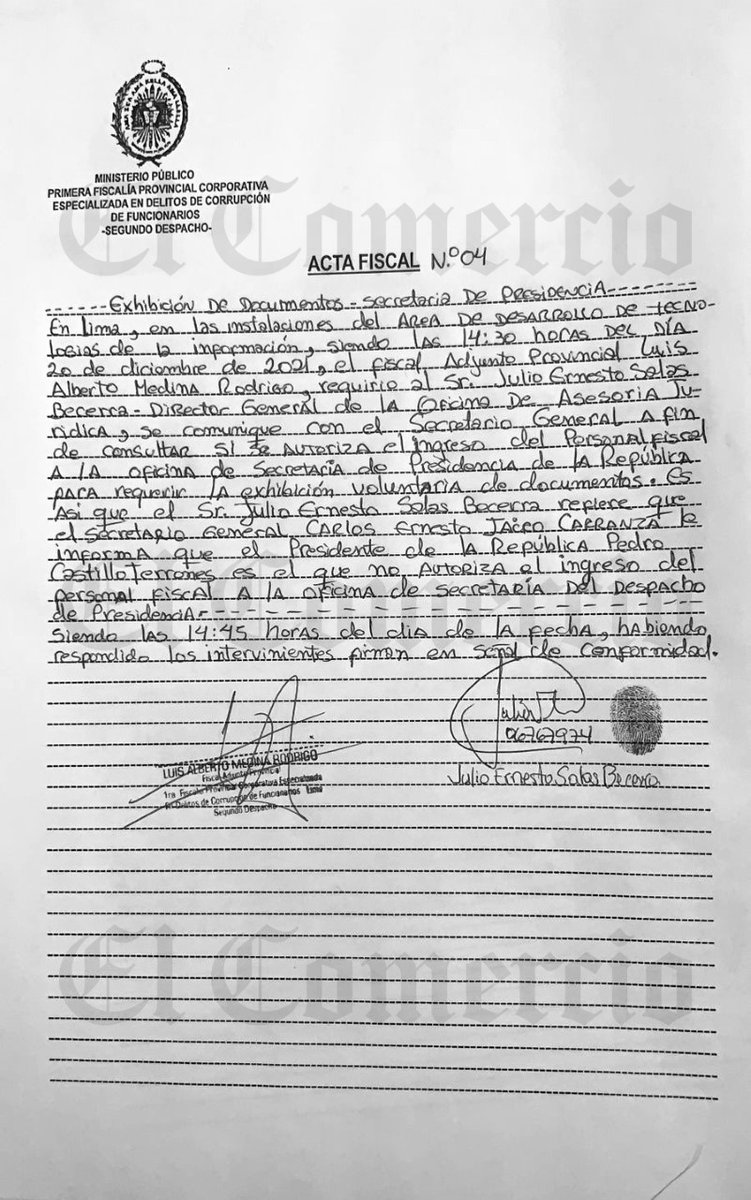 MINISTERIO PÚBLICO
PRIMERA FISCALÍA PROVINCIAL CORPORATIVA
ESPECIALIZADA EN DELITOS DE CORRUPCIÓN
DE FUNCIONARIOS
-SEGUNDO DESPACHO-
El Comercio
ACTA FISCAL N.º 04
Exhibición De Documentos - Secretaria De Presidencia
En Lima, en las instalaciones del Area de Desarrollo de Tecno-
logias de la información, siendo las 14:30 horas del día
20 de diciembre de 2021, el fiscal Adjunto Provincial Luis
Alberto Medina Rodrigo, requirio al Sr. Julio Ernesto Salas
Becerra - Director General de la Oficina de Asesoria Ju-
ridica, se comunique con el Secretario General a fin
de consultar si se autoriza el ingreso del Personal fiscal
A la oficina de Secretaría de Presidencia de la República
para requerir la exhibición voluntaria de documentos. Es
Asi que el Sr. Julio Ernesto Salas Becerra refiere que
el Secretario General Carlos Ernesto Jaico Carranza le
informa que el Presidente de la República Pedro
Castillo Terrones es el que no autoriza el ingreso del
personal fiscal a la oficina de secretaría del Despacho
de Presidencia.
Siendo las 14:45 horas del dia de la fecha, habiendo
respondido los intervinientes firman en señal de conformidad.
06767974
LUIS ALBERTO MEDINA RODRIGO
Fiscal Adjunto Provincial
1ra Fiscalía Provincial Corporativa Especializada
en Delitos de Corrupción de Funcionarios Lima
Segundo Despacho
Julio Ernesto Salas Becerra
El Comercio